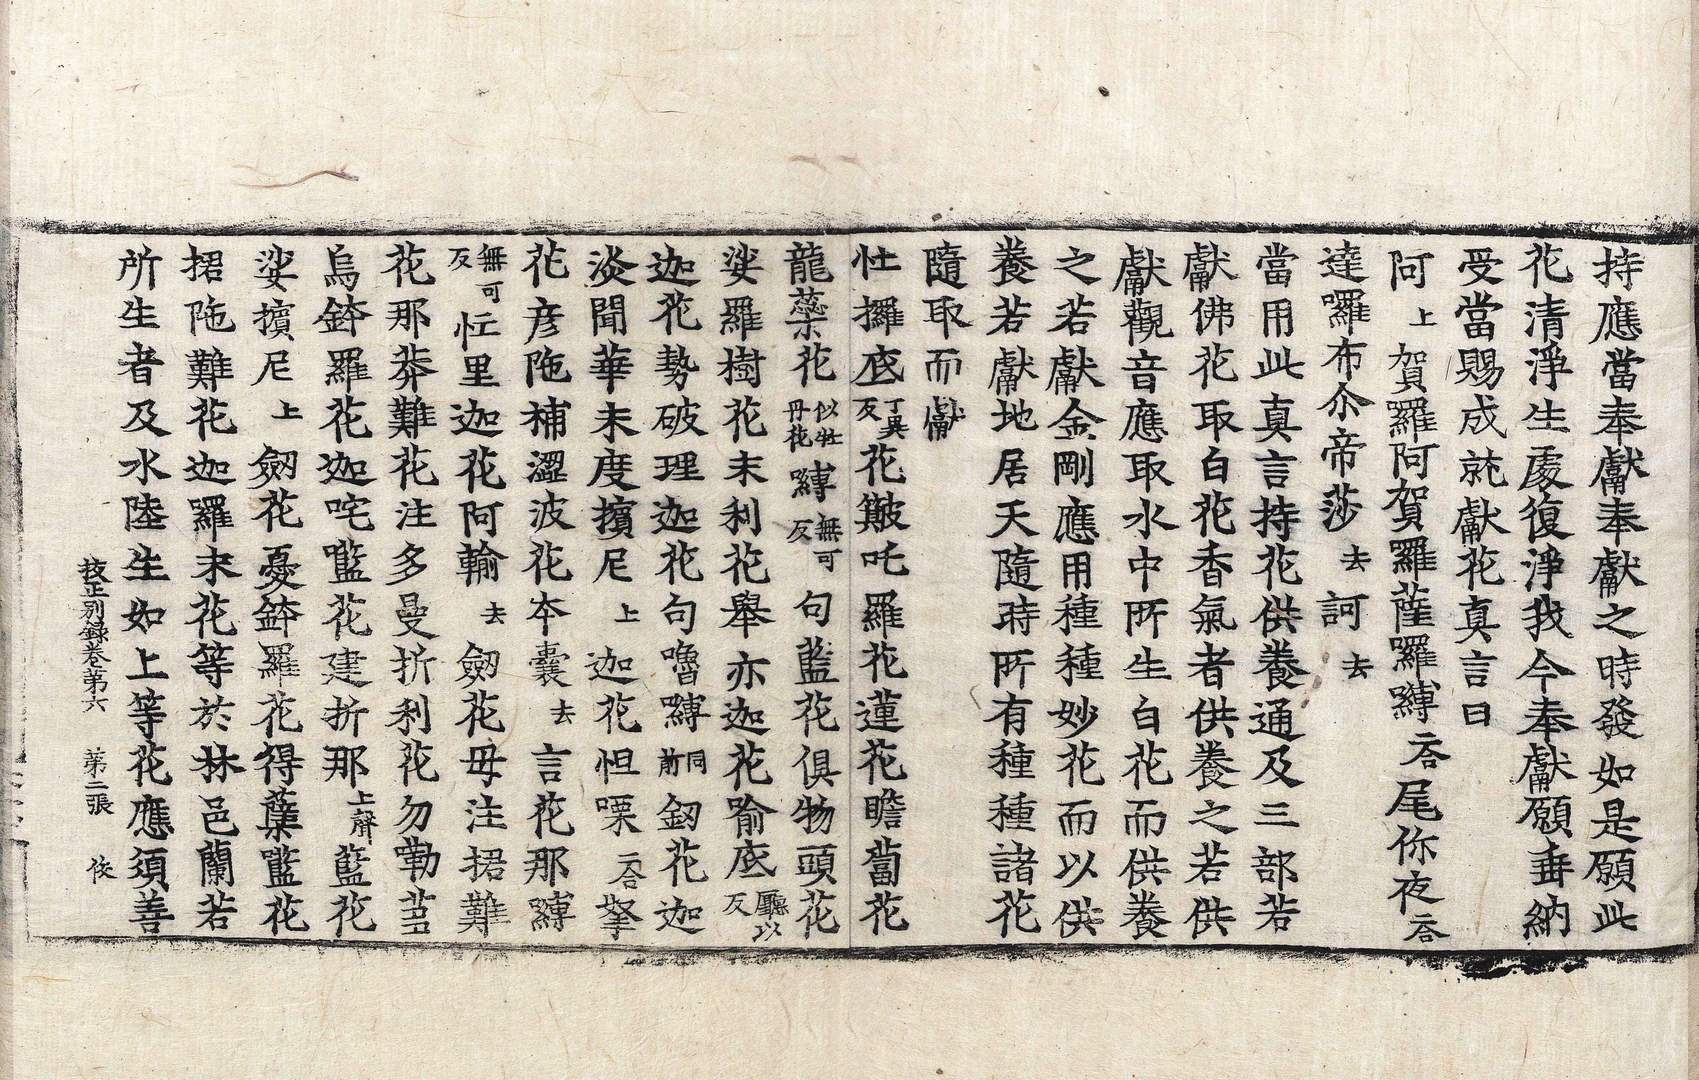 持應當奉獻奉獻之時發如是願此
花清淨生處復淨我今奉獻願垂納
受當賜成就獻花真言曰
阿上賀羅阿賀羅薩囉嚩二合尾你夜二合
達囉布尒帝莎去訶去
當用此真言持花供養通及三部若
獻佛花取白花香氣者供養之若供
獻觀音應取水中所生白花而供養
之若獻金剛應用種種妙花而以供
養若獻地居天隨時所有種種諸花
隨取而獻
忙攞底丁異反花簸吒羅花蓮花瞻蔔花
龍蘂花似牡丹花嚩無可反句藍花俱物頭花
娑羅樹花末利花舉亦迦花喻底廳以反
迦花勢破理迦花句嚕嚩同前釼花迦
淡聞華末度擯尼上迦花怛㗚二合拏
花彥陁補澀波花夲囊去言花那嚩
無可反忙里迦花阿輸去劒花毋注捃難
花那莽難花注多曼折利花勿勒菃
烏鉢羅花迦咤㘕花建折那上聲藍花
娑擯尼上劒花憂鉢羅花得蘖藍花
捃陁難花迦羅末花等於林邑蘭若
所生者及水陸生如上等花應須善
挍正別錄卷第六 第二張 俊